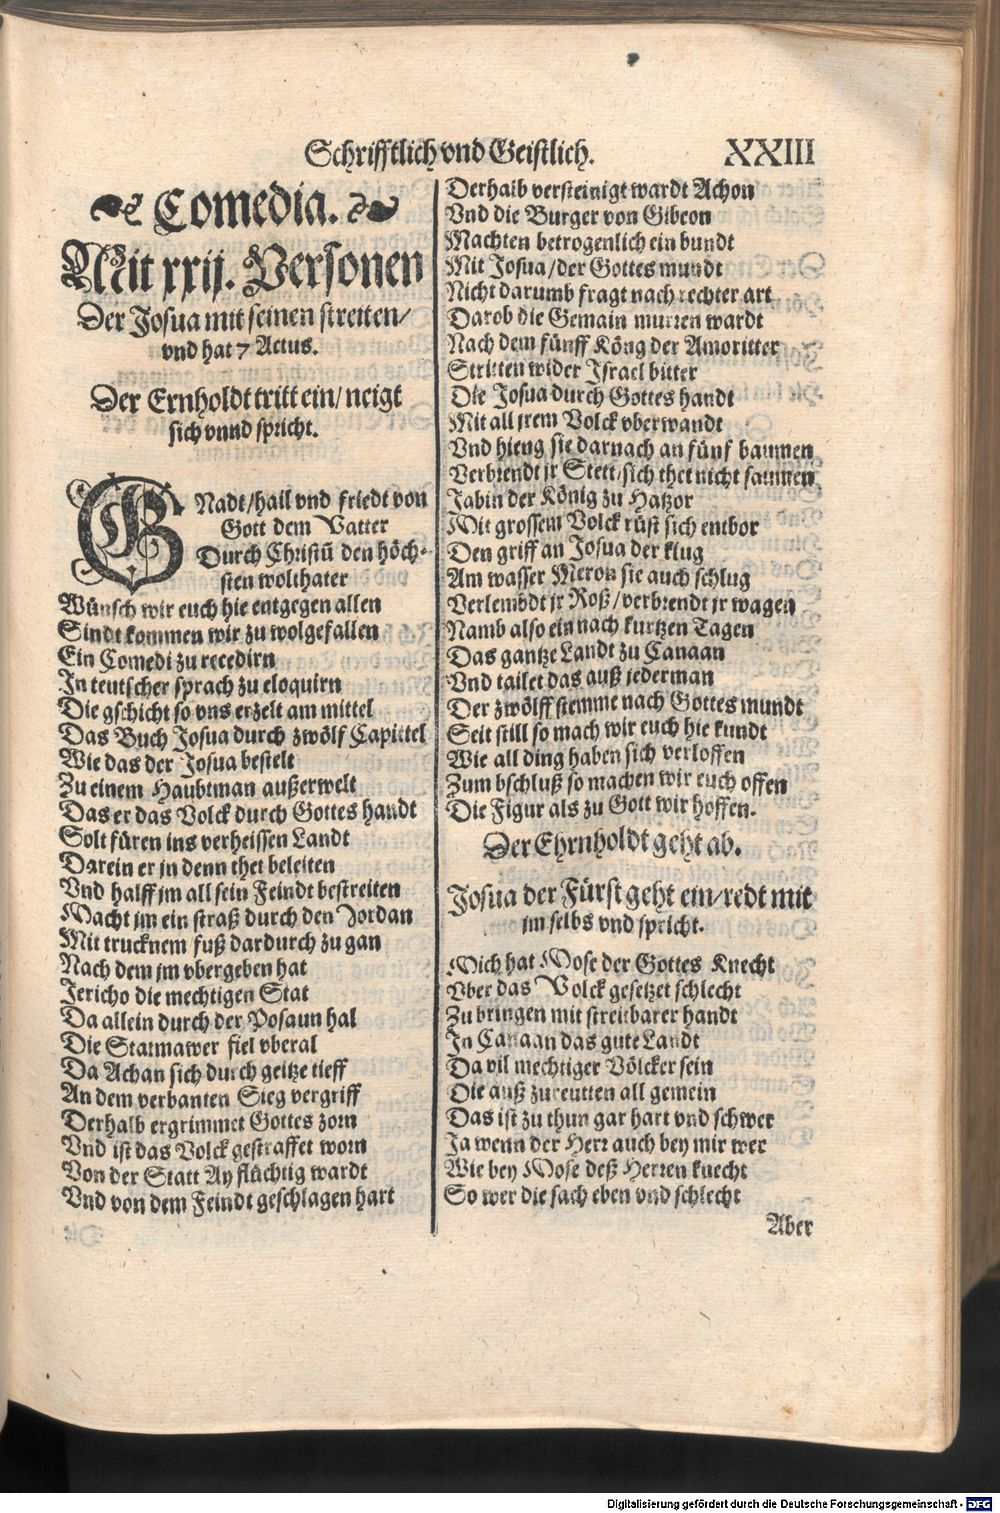 Schrifftlich vnd Geistlich. XXIII
Comedia.
Mit xxij. Personen
Der Josua mit seinen streiten/
vnd hat 7 Actus.
Der Ernholdt tritt ein/ neigt
sich vnnd spricht.
GNadt/hail vnd friedt von
Gott dem Vatter
Durch Christū den höch-
sten wolthater
Wünsch wir euch hie entgegen allen
Sindt kommen wir zu wolgefallen
Ein Comedi zu recedirn
In teutscher sprach zu eloquirn
Die gschicht so vns erzelt am mittel
Das Buch Josua durch zwölf Capittel
Wie das der Josua bestelt
Zu einem Haubtman außerwelt
Das er das Volck durch Gottes handt
Solt füren ins verheissen Landt
Darein er jn denn thet beleiten
Vnd halff jm all sein Feindt bestreiten
Macht jm ein straß durch den Jordan
Mit trucknem fuß dardurch zu gan
Nach dem jm vbergeben hat
Jericho die mechtigen Stat
Da allein durch der Posaun hal
Die Statmawer fiel vberal
Da Achan sich durch geitze tieff
An dem verbanten Sieg vergriff
Derhalb ergrimmet Gottes zorn
Vnd ist das Volck gestraffet worn
Von der Statt Ay flüchtig wardt
Vnd von dem Feindt geschlagen hart
Derhalb versteinigt wardt Achon
Vnd die Burger von Gibeon
Machten betrogenlich ein bundt
Mit Josua/der Gottes mundt
Nicht darumb fragt nach rechter art
Darob die Gemain murren wardt
Nach dem fünff Köng der Amoritter
Stritten wider Israel bitter
Die Josua durch Gottes handt
Mit all jrem Volck vberwandt
Vnd hieng sie darnach an fünf baumen
Verbrendt jr Stett/sich thet nicht saumen
Jabin der König zu Hatzor
Mit grossem Volck rüst sich entbor
Den griff an Josua der klug
Am wasser Meron sie auch schlug
Verlembdt jr Roß/verbrendt jr wagen
Namb also ein nach kurtzen Tagen
Das gantze Landt zu Canaan
Vnd tailet das auß jederman
Der zwölff stemme nach Gottes mundt
Seit still so mach wir euch hie kundt
Wie all ding haben sich verloffen
Zum bschluß so machen wir euch offen
Die Figur als zu Gott wir hoffen.
Der Ehrnholdt geht ab.
Josua der Fürst geht ein/redt mit
jm selbs vnd spricht.
Mich hat Mose der Gottes Knecht
Vber das Volck gesetzet schlecht
Zu bringen mit streitbarer handt
In Canaan das gute Landt
Da vil mechtiger Völcker sein
Die auß zureutten all gemein
Das ist zu thun gar hart vnd schwer
Ja wenn der Herr auch bey mir wer
Wie bey Mose deß Herren knecht
So wer die sach eben vnd schlecht
Aber
Digitalisierung gefördert durch die Deutsche Forschungsgemeinschaft - DFG